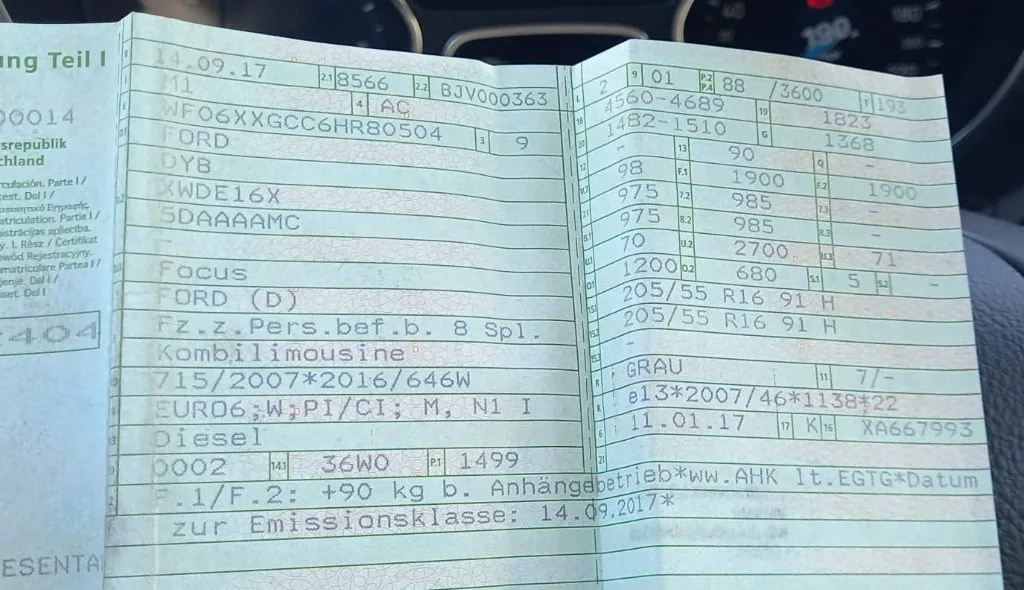 ung Teil I
00014
srepublik
chland
rculación. Parte I /
test. Del I /
atriculation. Partie I /
gistrācijas apliecība.
y. I. Rész / Certifikat
owód Rejestracyjny.
matriculare Partea I /
enje. Del I /
iset. Del I
2404
ESENTA
14.09.17 2.1 8566 2.2 BJV000363
M1 4 AC
WF06XXGCC6HR80504 3 9
FORD
DYB
XWDE16X
5DAAAAMC
-
Focus
FORD (D)
Fz.z.Pers.bef.b. 8 Spl.
Kombilimousine
715/2007*2016/646W
EURO6;W;PI/CI; M, N1 I
Diesel
0002 14.1 36W0 P.1 1499
F.1/F.2: +90 kg b. Anhängebetrieb*ww.AHK lt.EGTG*Datum
zur Emissionsklasse: 14.09.2017*
L 2 9 01 P.2 P.4 88 /3600 T 193
18 4560-4689 19 1823
20 1482-1510 G 1368
12 - 13 90 Q -
V.7 98 F.1 1900 F.2 1900
7.1 975 7.2 985 7.3 -
8.1 975 8.2 985 8.3 -
U.1 70 U.2 2700 U.3 71
O.1 1200 O.2 680 S.1 5 S.2 -
15.1 205/55 R16 91 H
15.2 205/55 R16 91 H
15.3 -
R GRAU 11 7/-
K e13*2007/46*1138*22
6 11.01.17 17 K 16 XA667993
21
180